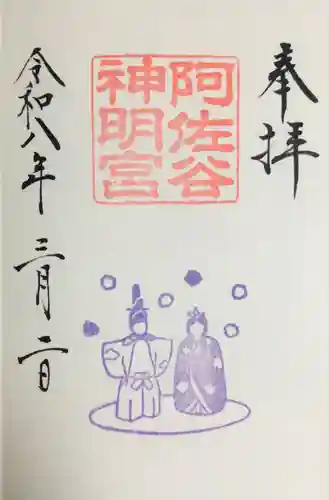 奉拝
阿佐谷
神明宮
令和八年 三月二日